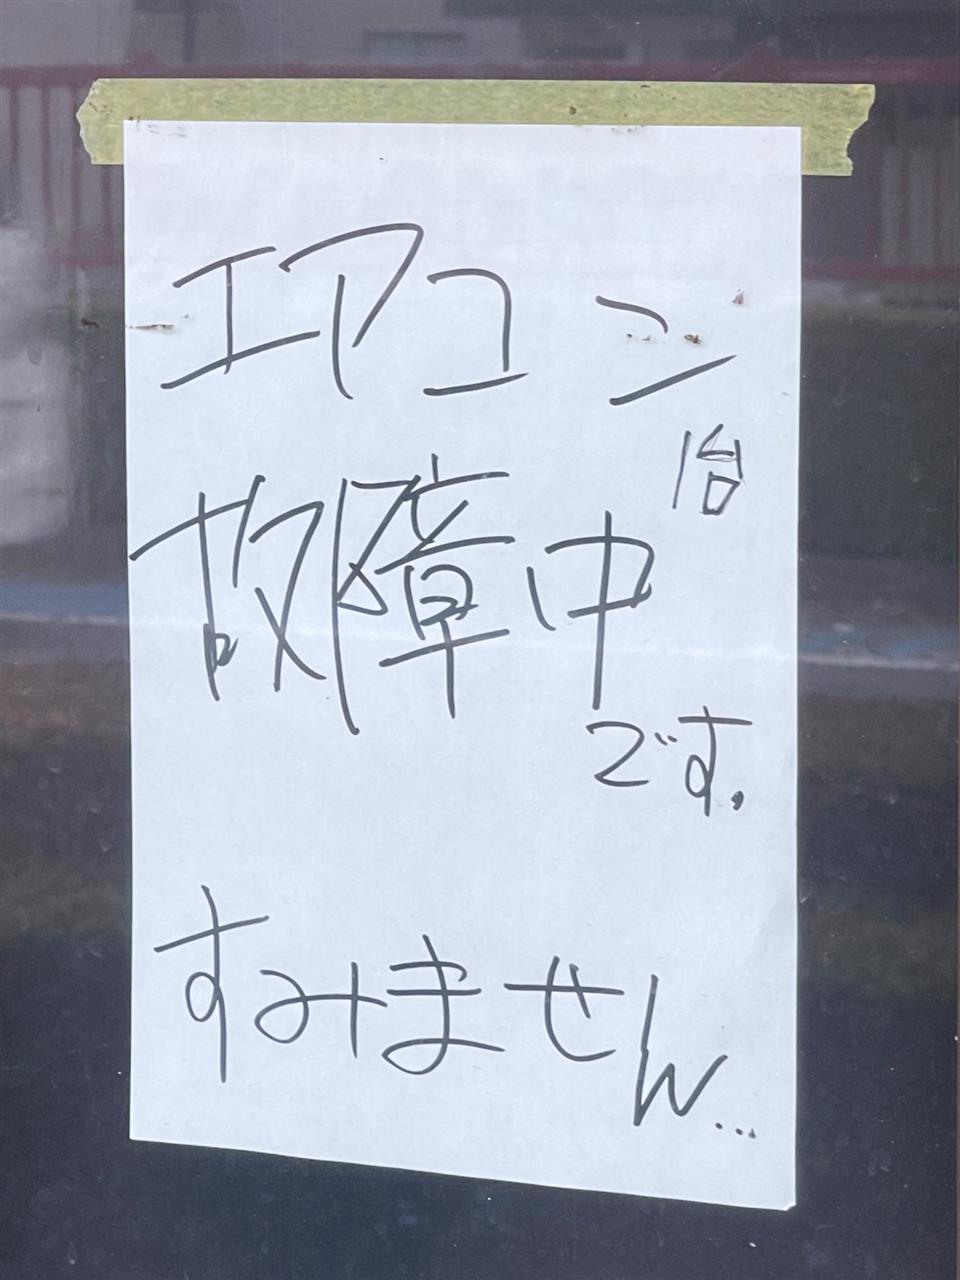 エアコン
1台
故障中
です.
すみません...